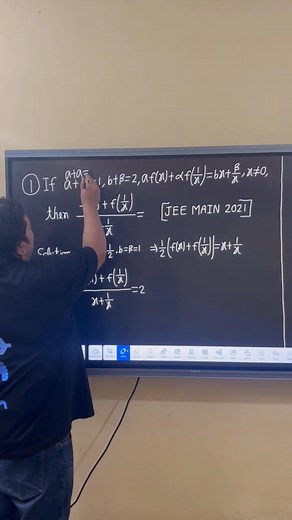 a+a=
① If a+ =1, b+β=2, af(x)+αf(1/x)=bx+β/x, x≠0,
then + f(1/x) / 1/x = [JEE MAIN 2021]
Solution 1/2, b=β=1 ⇒ 1/2(f(x)+f(1/x))=x+1/x
) + f(1/x) / x+1/x = 2